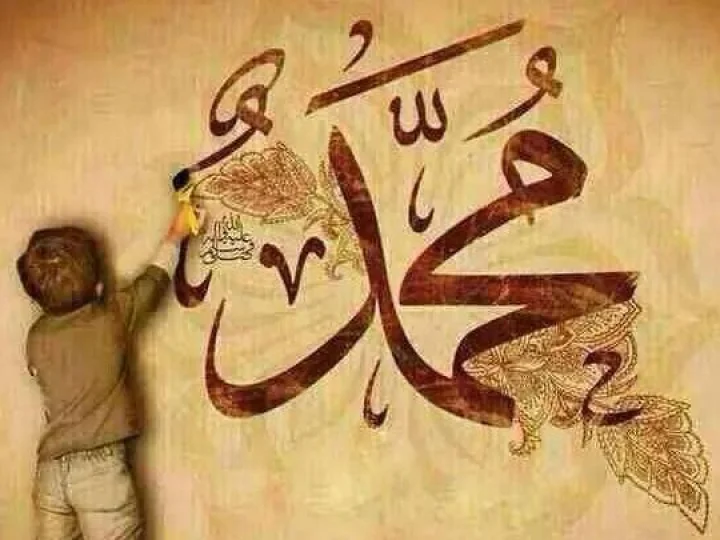 مُحَمَّدٌ
صلى الله عليه وآله وسلم